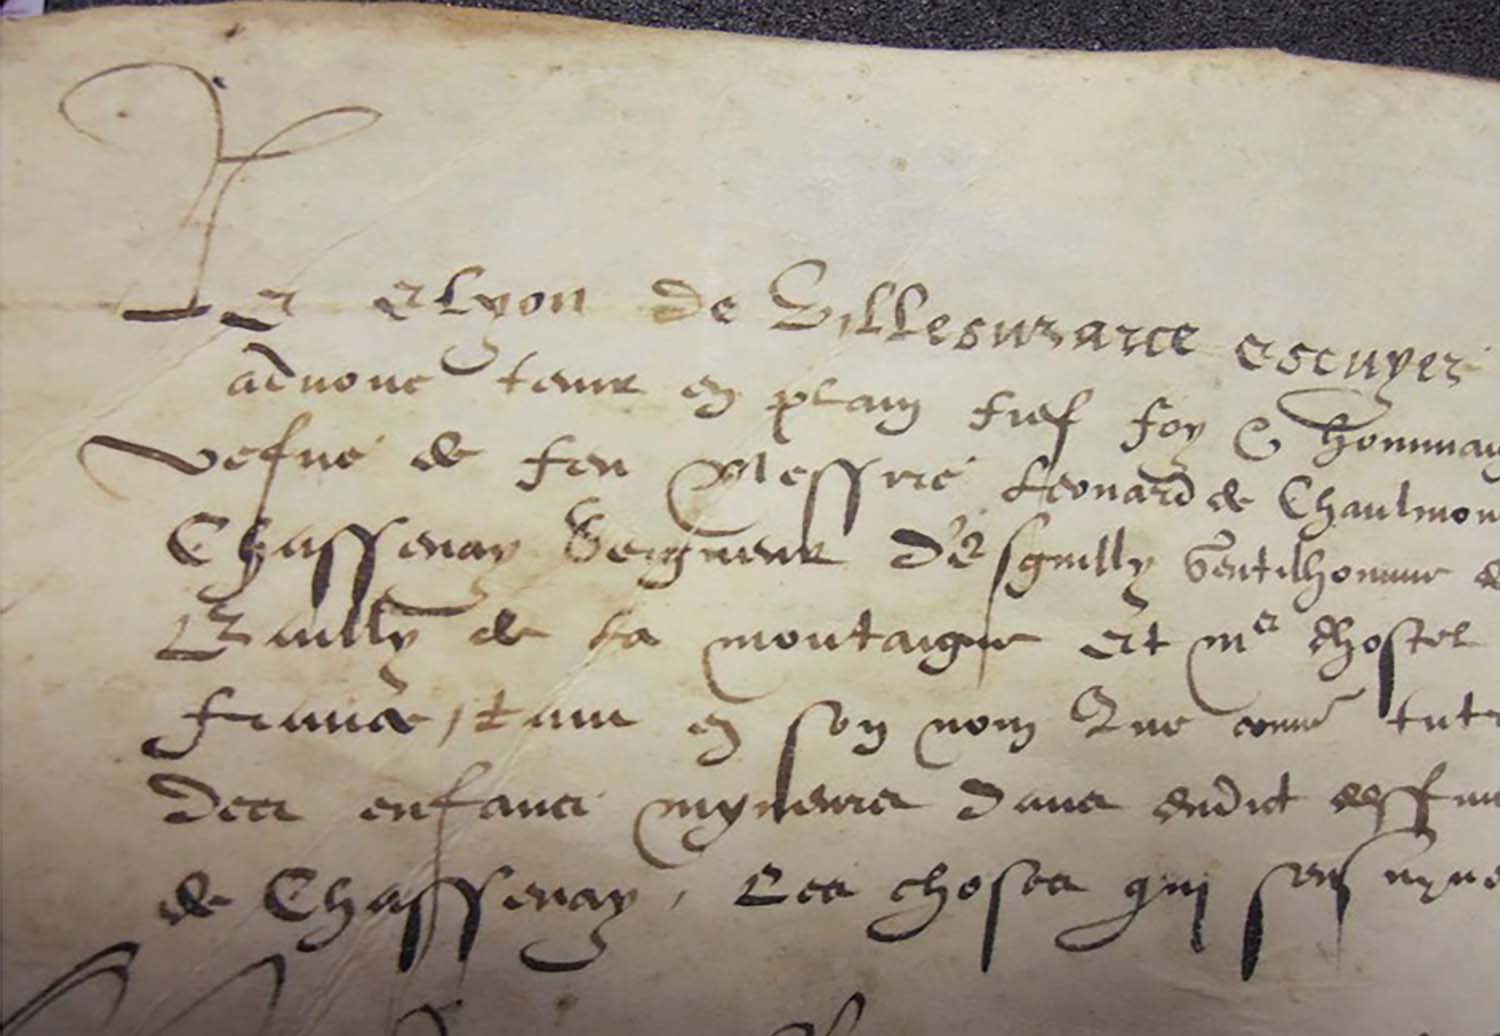 Je Elyon de Villesurarce escuyer
advoue tenir en plain fief foy & hommaig
vefue de feu Messire Leonard de Chaulmon
Chassenay Seigneur d'Esguilly gentilhomme d
Bailly de la montaigne Et me dhostel
france, tant en son nom Que comme tutr
des enfans myneurs dans dudict deffun
de Chassenay, Les choses qui sensuyue